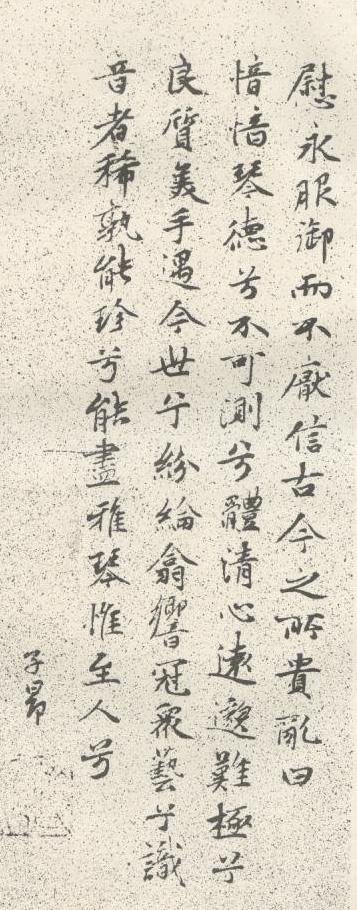 慰永服御而不厭信古今之所貴亂曰
愔愔琴德兮不可測兮體清心遠邈難極兮
良質美手遇今世兮紛綸翕響冠衆藝兮識
音者稀孰能珍兮能盡雅琴惟至人兮
子昂